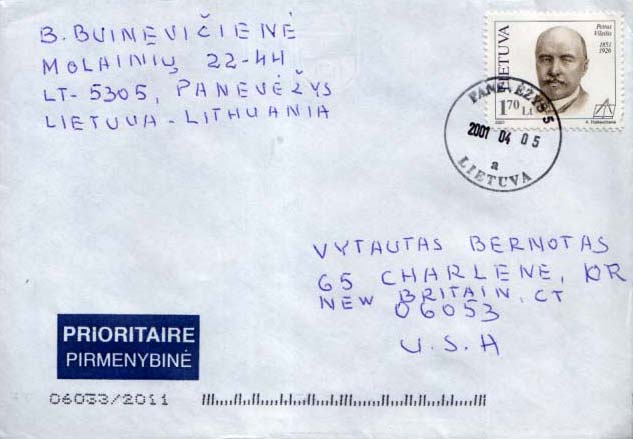 B. BUINEVIČIENĖ
MOLAINIŲ 22-44
LT-5305, PANEVĖŽYS
LIETUVA-LITHUANIA
LIETUVA
Petras
Vileišis
1851
1926
1.70 Lt
2001
PANEVĖŽYS 5
2001 04 05
a
LIETUVA
VYTAUTAS BERNOTAS
65 CHARLENE, DR
NEW BRITAIN, CT
06053
U.S.A
PRIORITAIRE
PIRMENYBINĖ
06033/2011